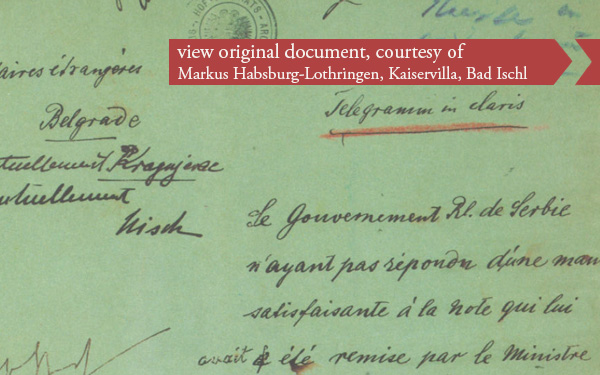 view original document, courtesy of
Markus Habsburg-Lothringen, Kaiservilla, Bad Ischl
aires étrangères
Belgrade
tuellement Kragujevac
ntuellement
Nisch
Telegramm in claris
Le Gouvernement Rl. de Serbie
n'ayant pas répondu d'une man
satisfaisante à la note qui lui
avait été remise par le Ministre